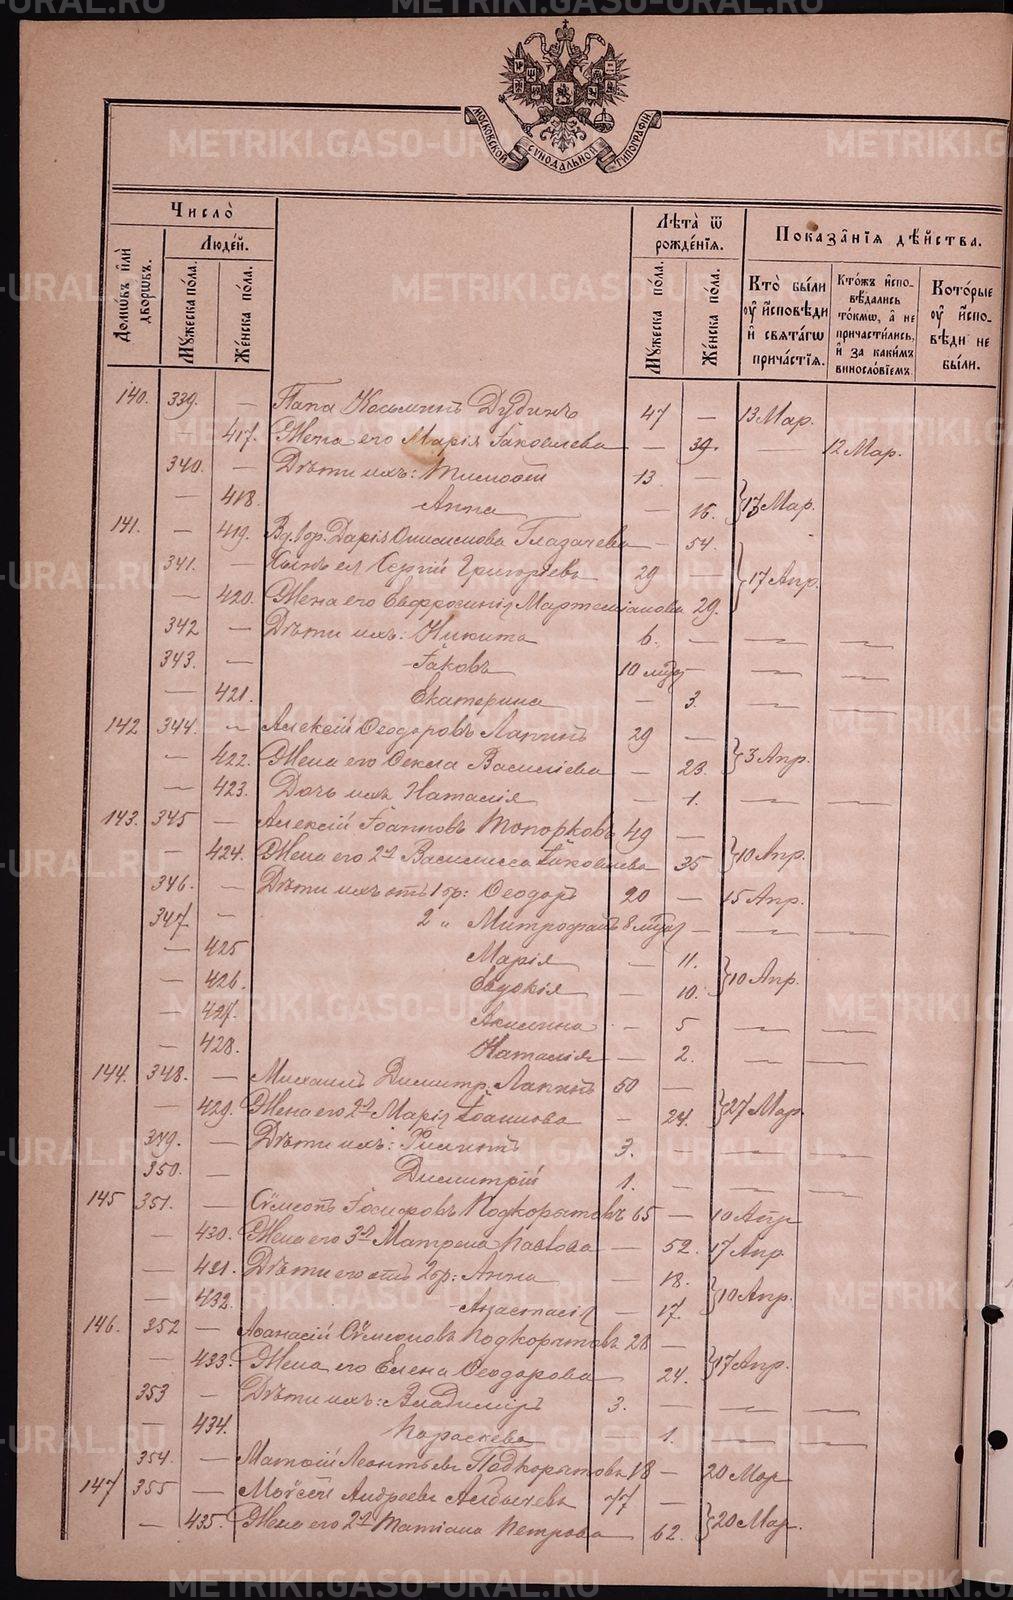 МОСКОВСКОЙ СѴНОДАЛЬНОЙ ТИПОГРАФІИ
Число̀
Люде́й.
Домѡвъ и҆лѝ дворѡвъ.
Мꙋ́жеска по́ла.
Же́нска по́ла.
Лѣ́та ѿ рожде́нїѧ.
Мꙋ́жеска по́ла.
Же́нска по́ла.
Показа̑нїѧ дѣ́йства.
Кто̀ бы́ли оу҆ и҆сповѣди и҆ свѧта́гѡ прича́стїѧ.
Кто́жъ и҆спо-вѣ́дались то́кмѡ, а҆ не причасти́лись, и҆ за каки́мъ винословїемъ.
Кото́рые оу҆ и҆спо-вѣди не бы́ли.
140. 339. — Папа Косьминъ Дудинъ 47 — 13 Мар.
417. Жена его Марія Іаковлева — 39. — 12 Мар.
340. — Дѣти ихъ: Тимоѳей 13 —
— 418. Анна — 16. } 13 Мар.
141. — 419. Вд. Дарія Онисимова Глазачева — 54.
341. — Сынъ ея Сергій Григорьевъ 29 — } 17 Апр.
— 420. Жена его Евфросинія Мартемианова 29.
342 — Дѣти ихъ: Никита 6. — — —
343. — Іаковъ 10 мцъ — — —
— 421. Екатерина — 3. — —
142 344. — Алексій Ѳеодоровъ Лапинъ 29 —
— 422. Жена его Ѳекла Василіева — 23. } 3 Апр.
— 423. Дочь ихъ Наталія — 1. — —
143. 345 — Алексій Іоанновъ Топорковъ 49 —
— 424. Жена его 2я Василисса Іаковлева 35 } 10 Апр.
346. — Дѣти ихъ отъ 1 бр: Ѳеодоръ 20 — 15 Апр.
347 — 2 „ Митрофанъ 8 мцъ — — —
— 425 Марія — 11.
— 426. Евдокія — 10. } 10 Апр.
— 427. Акилина — 5 — —
— 428. Наталія — 2. — —
144. 348. — Михаилъ Димитр. Лапинъ 50 —
— 429. Жена его 2я Марія Іоаннова — 24. } 27 Мар.
349. — Дѣти ихъ: Филиппъ 3. — — —
350. — Димитрій 1. — — —
145 351. — Сѵмеонъ Іосифовъ Подкорытовъ 65 — 10 Апр
— 430. Жена его 3я Матрена Павлова — 52. 17 Апр
— 431. Дѣти его отъ 2 бр: Анна — 18.
— 432. Анастасія — 17. } 10 Апр.
146. 352 — Аѳанасій Сѵмеоновъ Подкорытовъ 28 —
— 433. Жена его Елена Ѳеодорова — 24. } 17 Апр.
353 — Дѣти ихъ: Владимиръ 3. — — —
— 434. Параскева — 1. — —
354. — Матѳій Леонтьевъ Подкорытовъ 18 — 20 Мар
147 355 — Моѵсей Андреевъ 77 —
— 435. Жена его 2я Татіана Петрова — 62. } 20 Мар.
METRIKI.GASO-URAL.RU